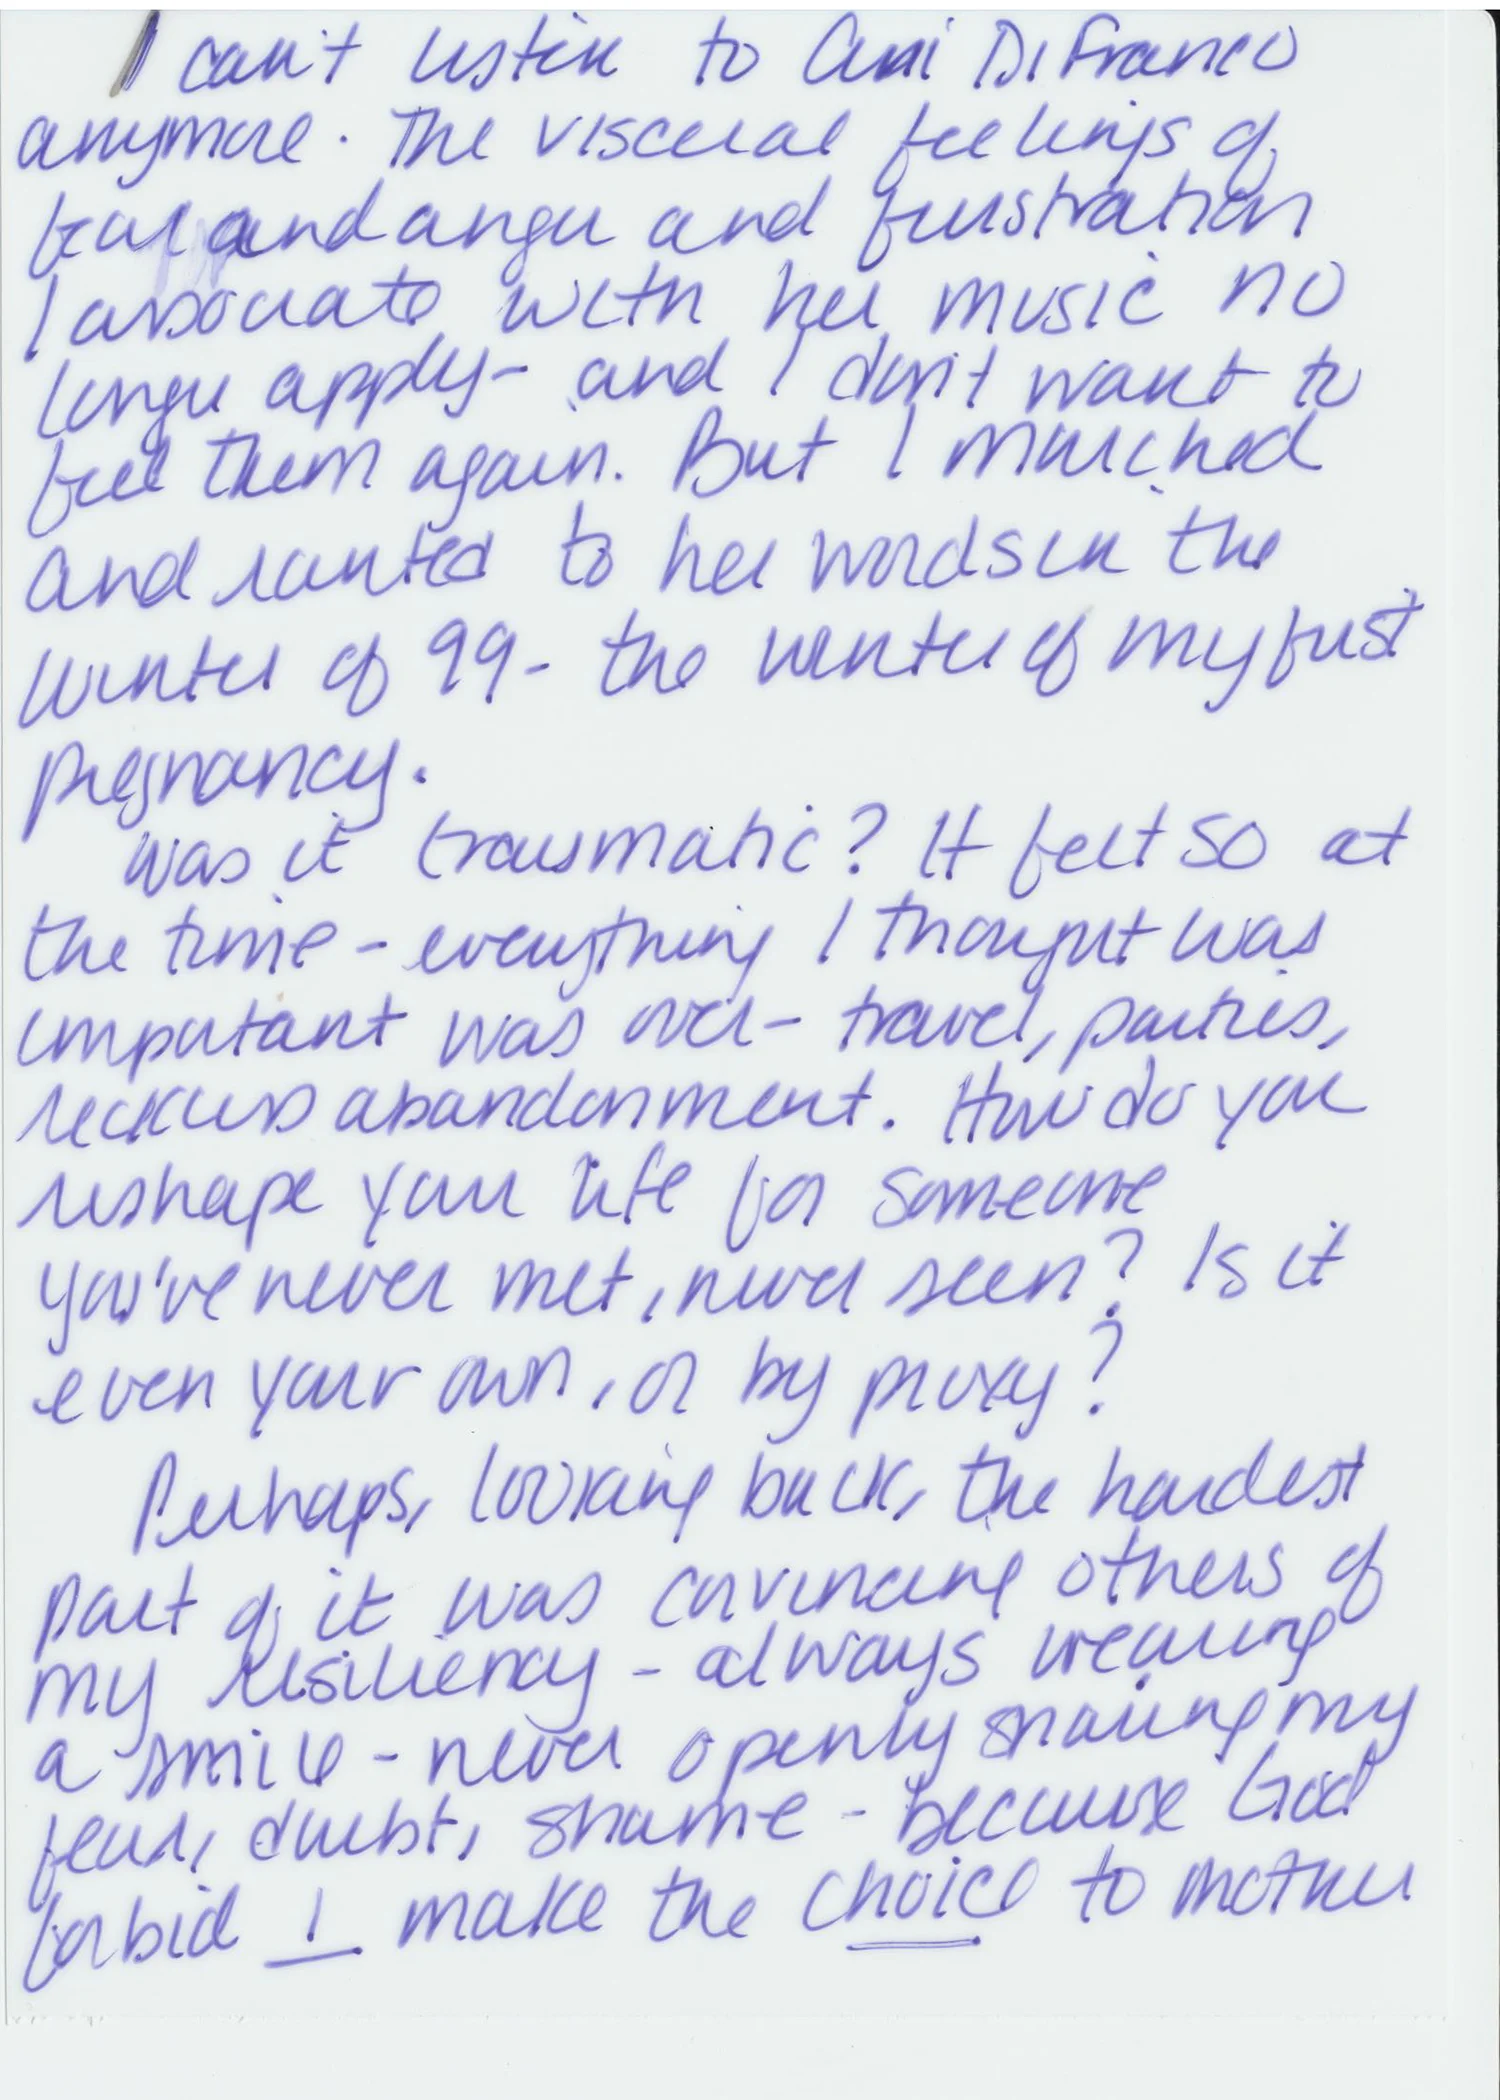 I can't listen to Ani DiFranco
anymore. The visceral feelings of
fear and anger and frustration
I associate with her music no
longer apply - and I don't want to
feel them again. But I marched
and ranted to her words in the
winter of 99 - the winter of my first
pregnancy.
Was it traumatic? It felt so at
the time - everything I thought was
important was over - travel, parties,
reckless abandonment. How do you
reshape your life for someone
you've never met, never seen? Is it
even your own, or by proxy?
Perhaps, looking back, the hardest
part of it was convincing others of
my resiliency - always wearing
a smile - never openly sharing my
fear, doubt, shame - because God
forbid I make the choice to mother